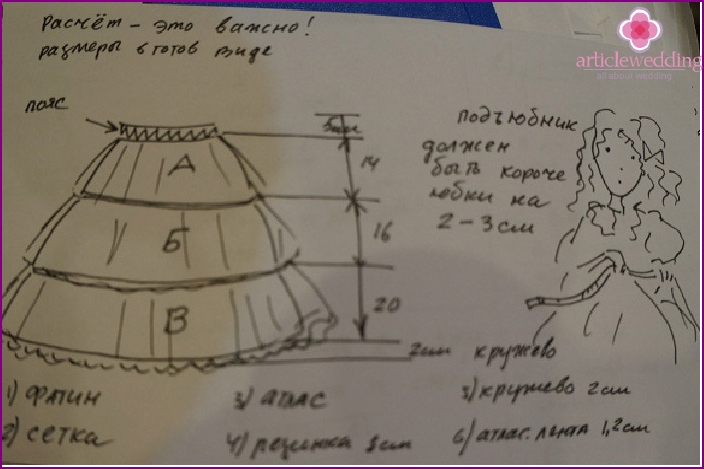 Расчёт – это важно!
размеры в готов виде
articlewedding
all about wedding
пояс
14
А
16
Б
20
В
подъюбник
должен
быть короче
юбки на
2–3 см
2см кружево
1) фатин
3) атлас
5) кружево 2см
2) сетка
4) резинка
6) атлас. лента 1,2см